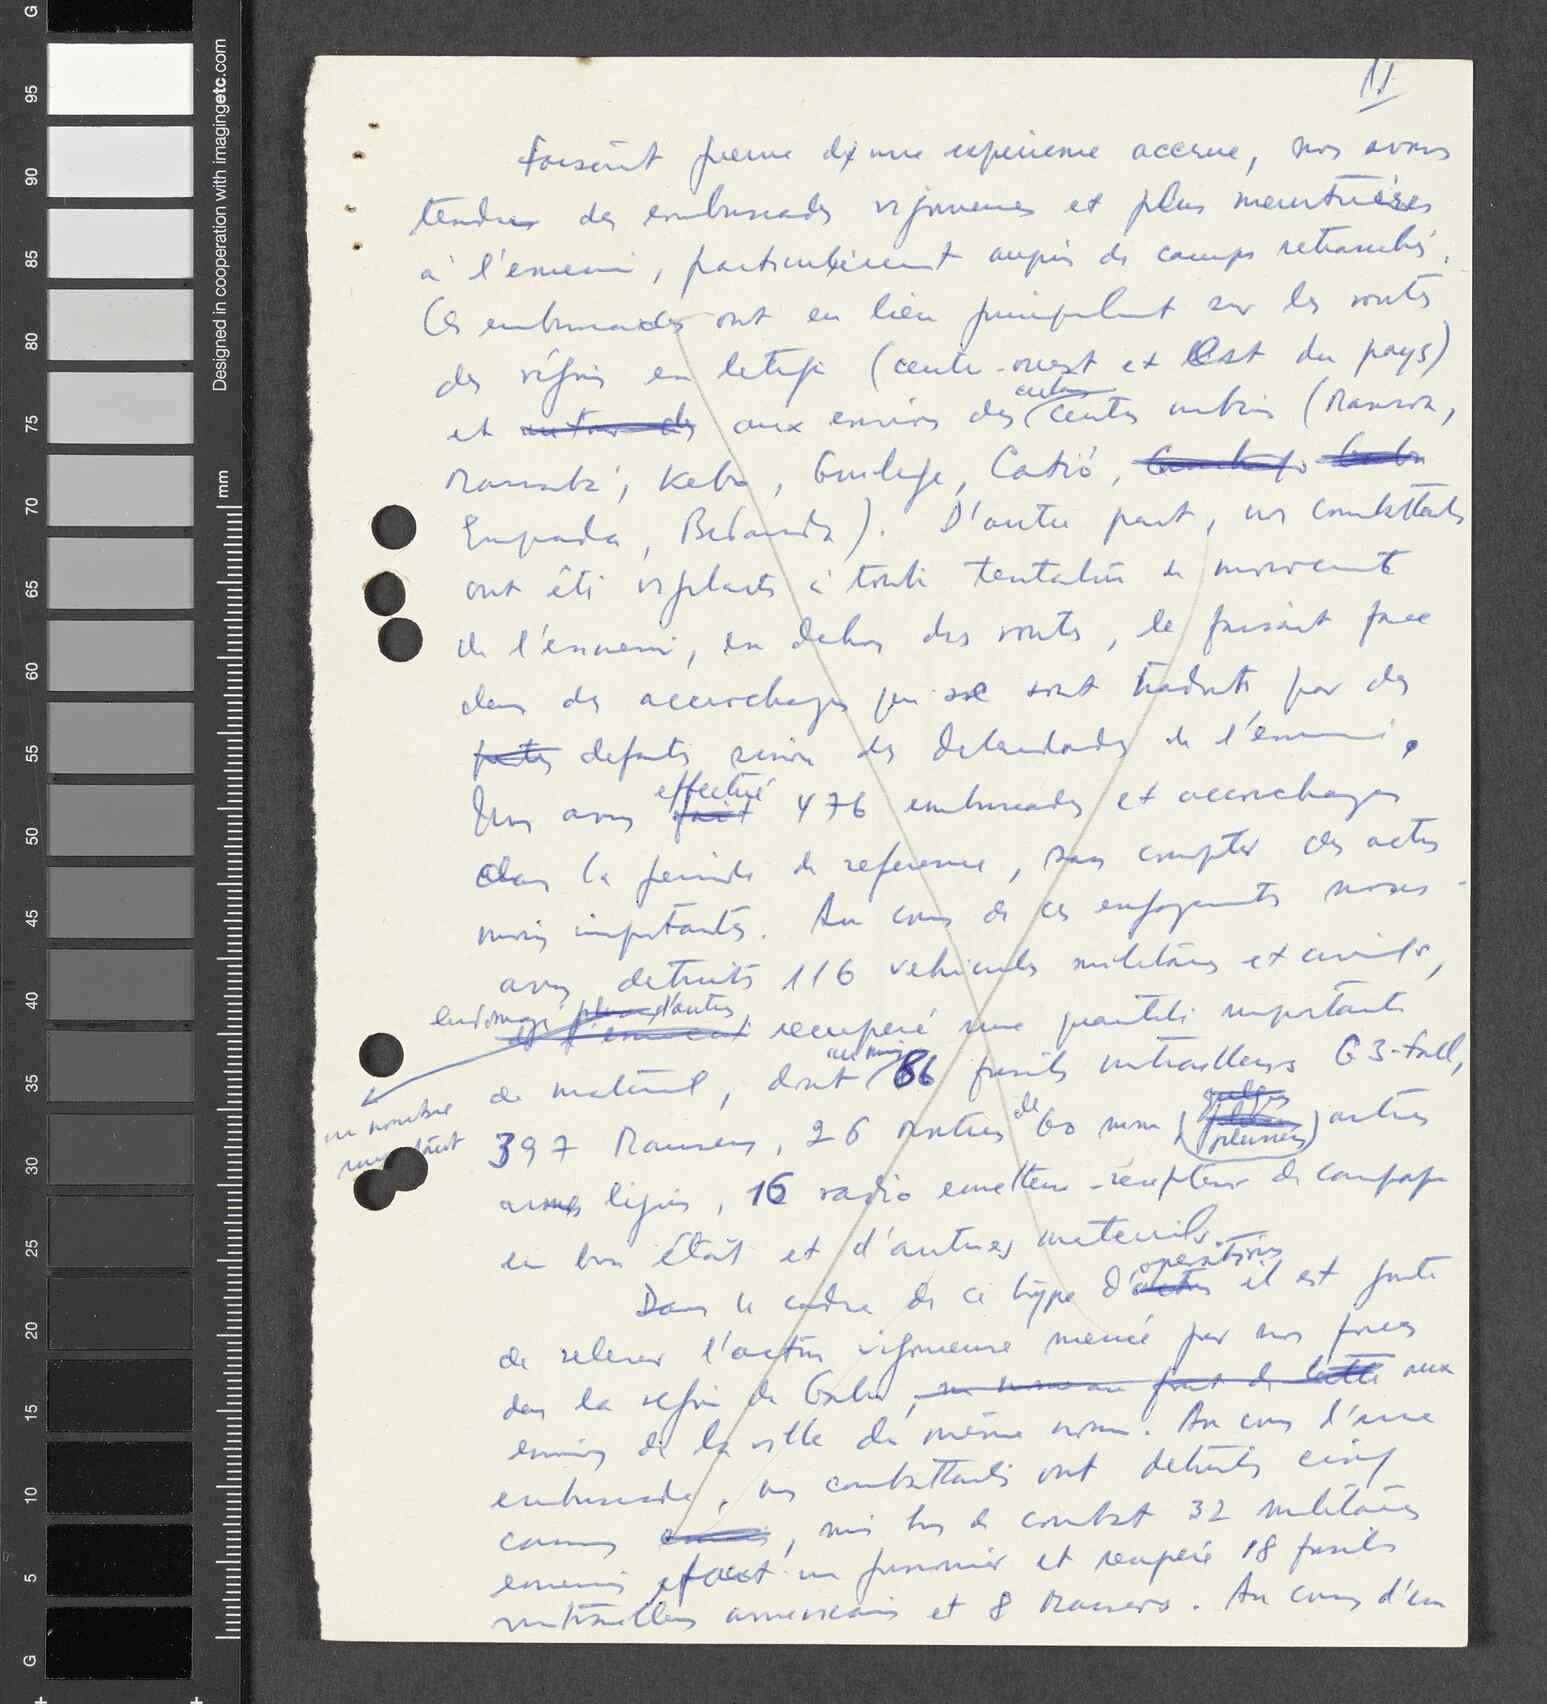 11
Faisant preuve d'une expérience accrue, nos avons
tendu des embuscades vigoureuses et plus meurtrières
à l'ennemi, particulièrement auprès de camps retranchés.
Ces embuscades ont eu lieu principalement sur les routes
des régions en litige (centre-ouest et Est du pays)
et autour des aux environs des certains centres urbains (Mansoa,
Mansabá, Kebo, Guileje, Catió,
Empada, Bedanda). D'autre part, nos combattants
ont été vigilants à toute tentative de mouvements
de l'ennemi, en dehors des routes, le faisant face
dans des accrochages qui se sont traduits par des
pertes défaits sinon des débandades de l'ennemi.
Nous avons fait effectué 476 embuscades et accrochages
dans la période de reference, sans compter des actes
moins importants. Au cours de ces engagements nous
avons detruits 116 vehicules militaires et civils,
endomagé d'autres récupéré une quantité importante
un nombre
de matériel, dont au moins 86 fusils mitrailleurs G3-Fall,
397 Mausers, 26 mortiers de 60 mm (plusieurs) autres
armes légères, 16 radio emetteur-récepteur de campagne
en bon état et d'autres matériels.
Dans le cadre de ce type d'actes opérations il est juste
de relever l'action vigoureuse menée par nos forces
dans la région de Gabu, un nouveau front de lutte aux
environs de la ville du même nom. Au cours d'une
embuscade, nos combattants ont détruits cinq
camions, mis hors de combat 32 militaires
ennemis, fait un prisonnier et récupéré 18 fusils
mitrailleurs americains et 8 Mausers. Au cours d'un
Designed in cooperation with imagingetc.com
mm
G
95
90
85
80
75
70
65
60
55
50
45
40
35
30
25
20
15
10
5
G